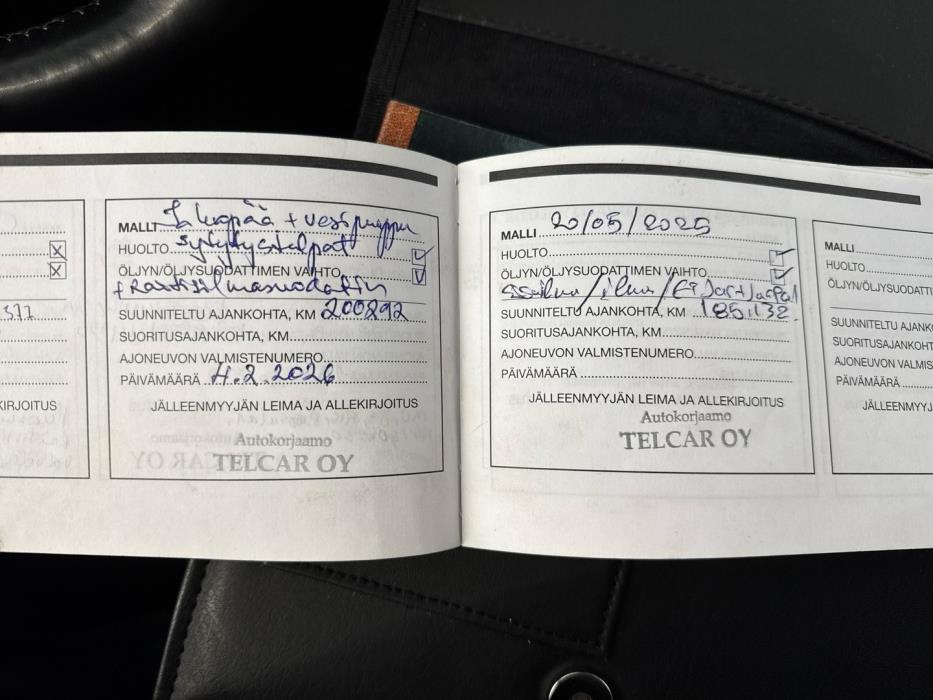 377
KIRJOITUS
Jakopää + vesipumppu
MALLI
sytytystulpat
HUOLTO
ÖLJYN/ÖLJYSUODATTIMEN VAIHTO
+ Raitisilmasuodatin
SUUNNITELTU AJANKOHTA, KM 200292
SUORITUSAJANKOHTA, KM
AJONEUVON VALMISTENUMERO
PÄIVÄMÄÄRÄ 4.2.2026
JÄLLEENMYYJÄN LEIMA JA ALLEKIRJOITUS
Autokorjaamo
TELCAR OY
MALLI 20/05/2025
HUOLTO
ÖLJYN/ÖLJYSUODATTIMEN VAIHTO
/ilma/
SUUNNITELTU AJANKOHTA, KM 185.132
SUORITUSAJANKOHTA, KM
AJONEUVON VALMISTENUMERO
PÄIVÄMÄÄRÄ
JÄLLEENMYYJÄN LEIMA JA ALLEKIRJOITUS
Autokorjaamo
TELCAR OY
MALLI
HUOLTO
ÖLJYN/ÖLJYSUODATTI
SUUNNITELTU AJANK
SUORITUSAJANKOHT
AJONEUVON VALMIS
PÄIVÄMÄÄRÄ
JÄLLEENMYYJ